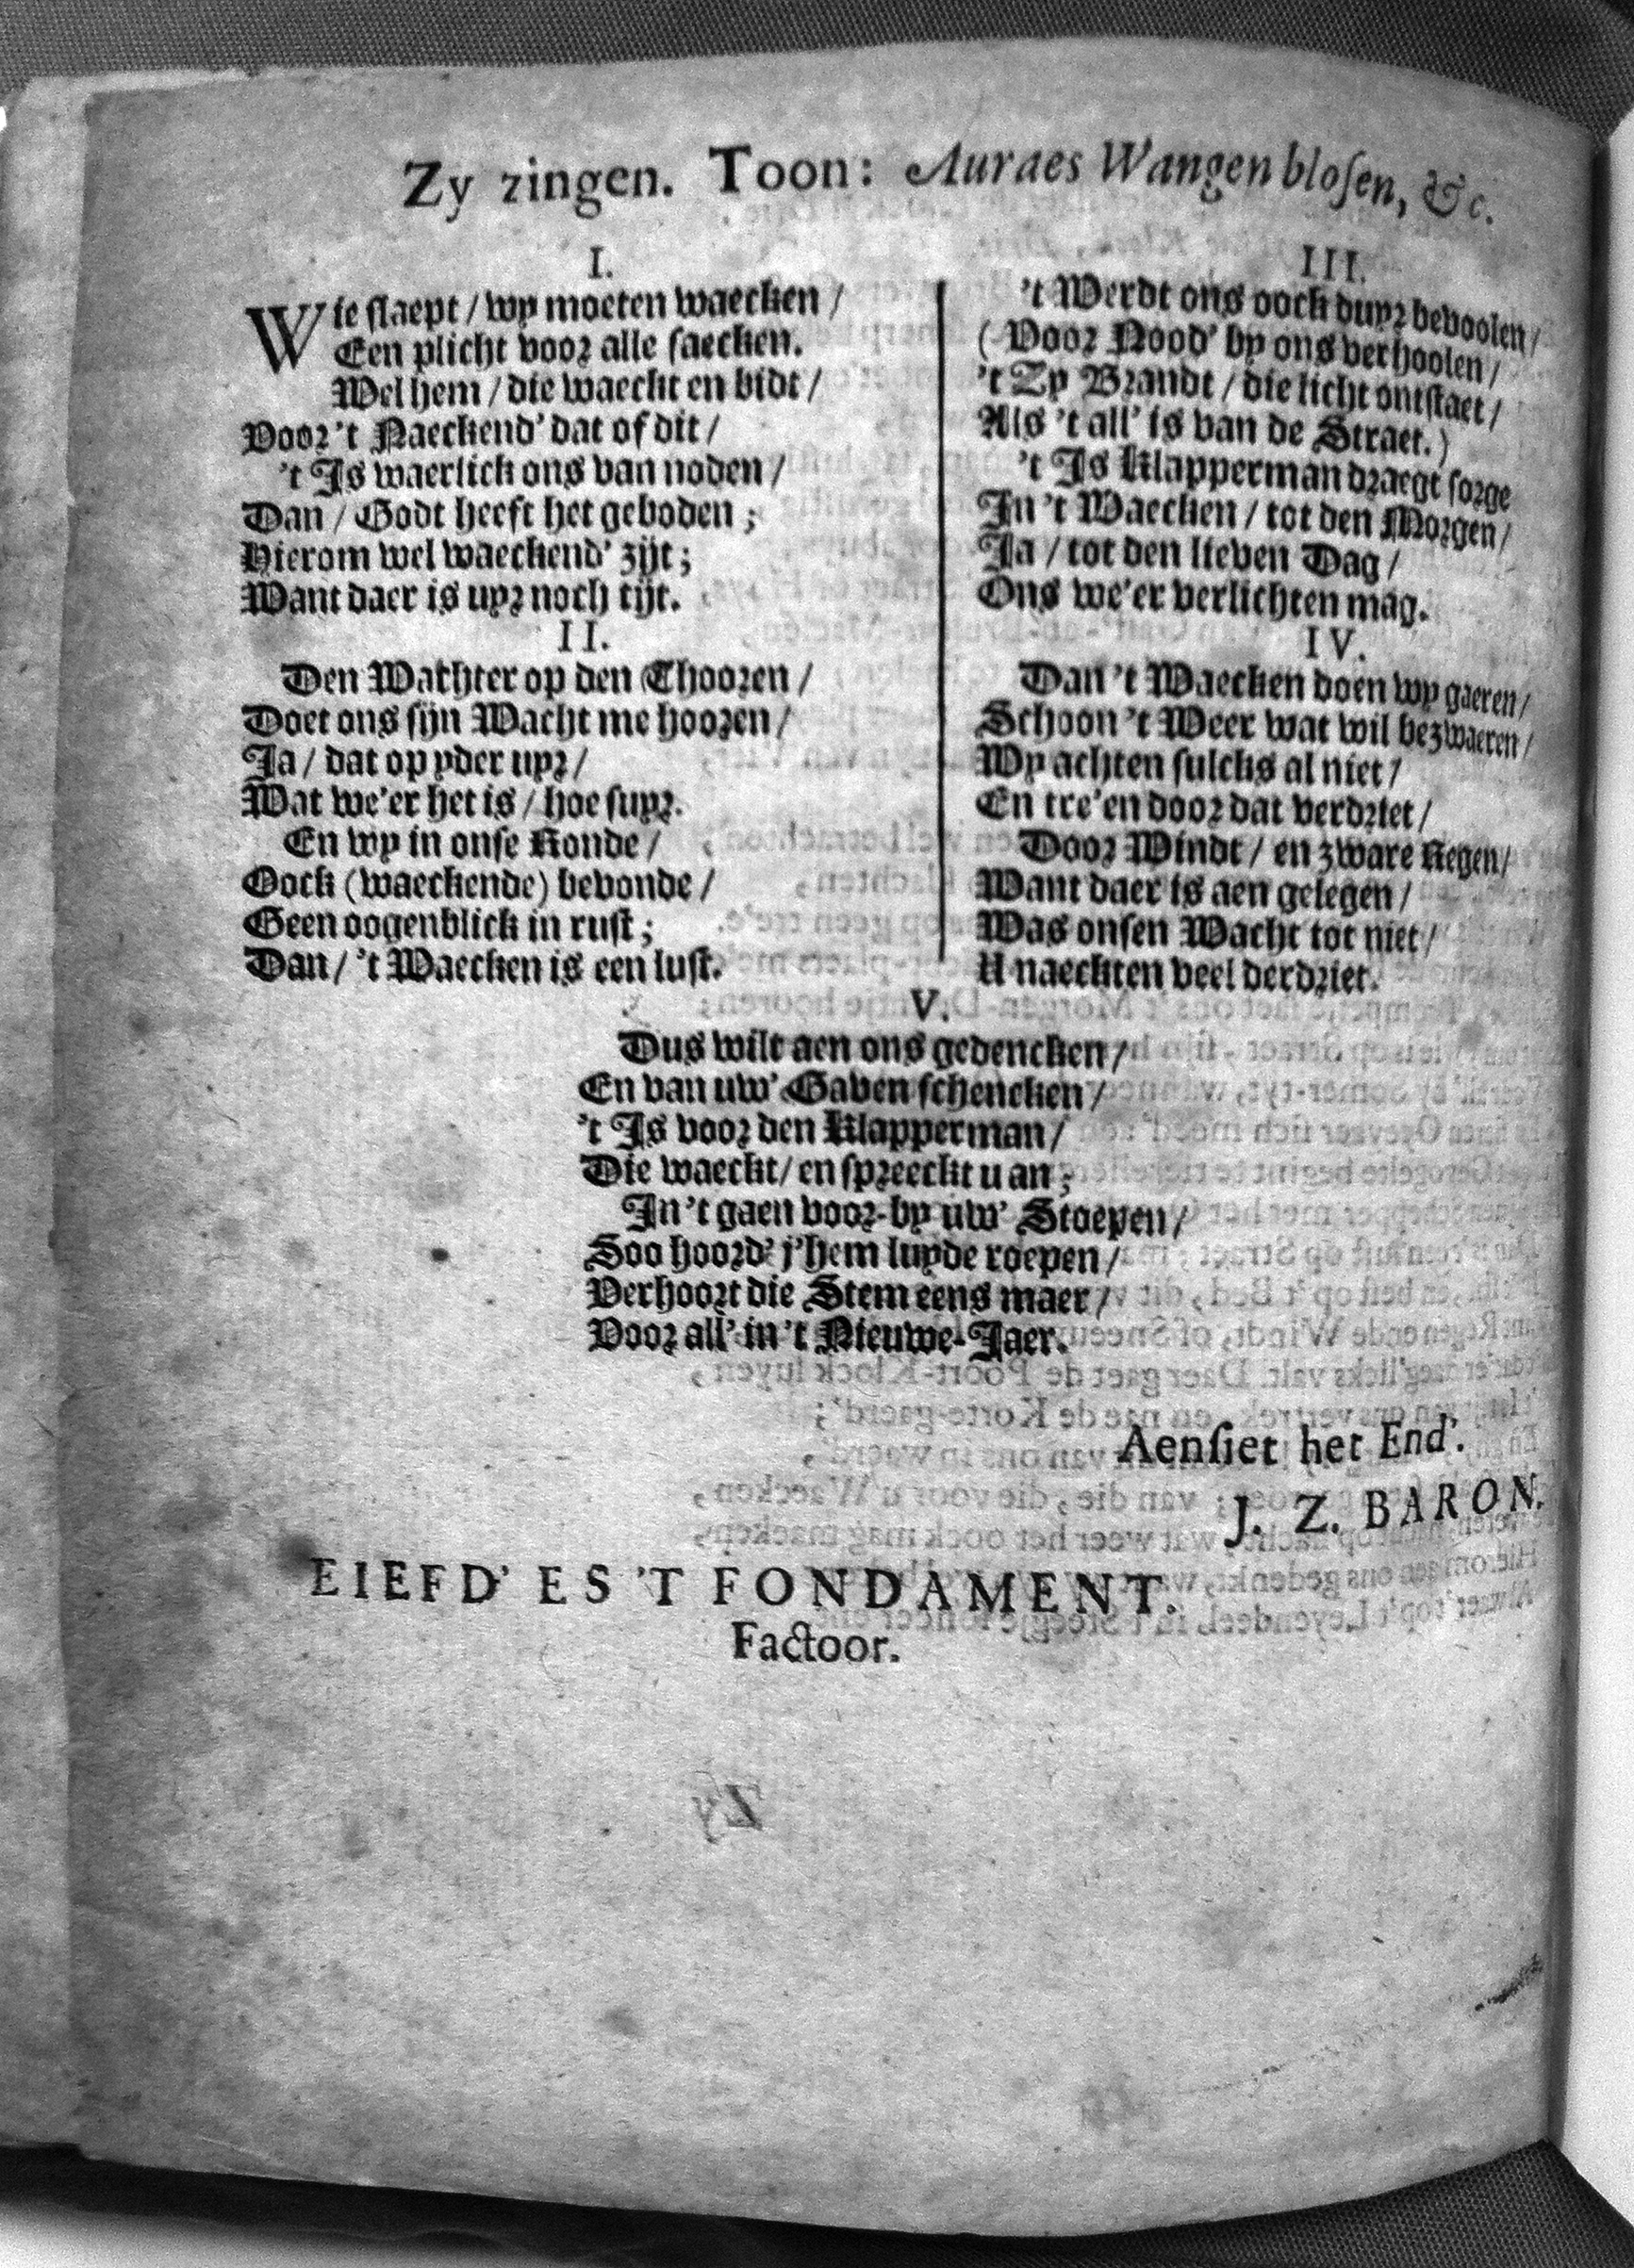 Zy zingen. Toon: Auraes Wangen blosen, &c.
I.
Wie slaept / wy moeten waecken /
Een plicht voor alle saecken.
Wel hem / die waeckt en bidt /
Voor 't Naeckend' dat of dit /
't Is waerlick ons van noden /
Dan / Godt heeft het geboden ;
Hierom wel waeckend' zijt ;
Want daer is uyr noch tijt.
II.
Den Wathter op den Thooren /
Doet ons sijn Wacht me hooren /
Ja / dat op yder uyr /
Wat we'er het is / hoe suyr.
En wy in onse Ronde /
Oock (waeckende) bevonde /
Geen oogenblick in rust ;
Dan / 't Waecken is een lust.
III.
't Werdt ons oock duyr bevoolen /
( Voor Nood' by ons verhoolen /
't Zy Brandt / die licht ontstaet /
Als 't all' is van de Straet. )
't Is Klapperman draegt sorge
In 't Waecken / tot den Morgen /
Ja / tot den lieven Dag /
Ons we'er verlichten mag.
IV.
Dan 't Waecken doen wy gaeren /
Schoon 't Weer wat wil bezwaeren /
Wy achten sulcks al niet /
En tre'en door dat verdriet /
Door Windt / en zware Regen /
Want daer is aen gelegen /
Was onsen Wacht tot niet /
U naeckten veel derdriet.
V.
Dus wilt aen ons gedencken /
En van uw' Gaven schencken /
't Is voor den Klapperman /
Die waeckt / en spreeckt u an ;
In 't gaen voor-by uw' Stoepen /
Soo hoord' j'hem luyde roepen /
Verhoort die Stem eens maer /
Voor all' in 't Nieuwe-Jaer.
Aensiet het End'.
J. Z. BARON.
EIEFD' ES 'T FONDAMENT.
Factoor.